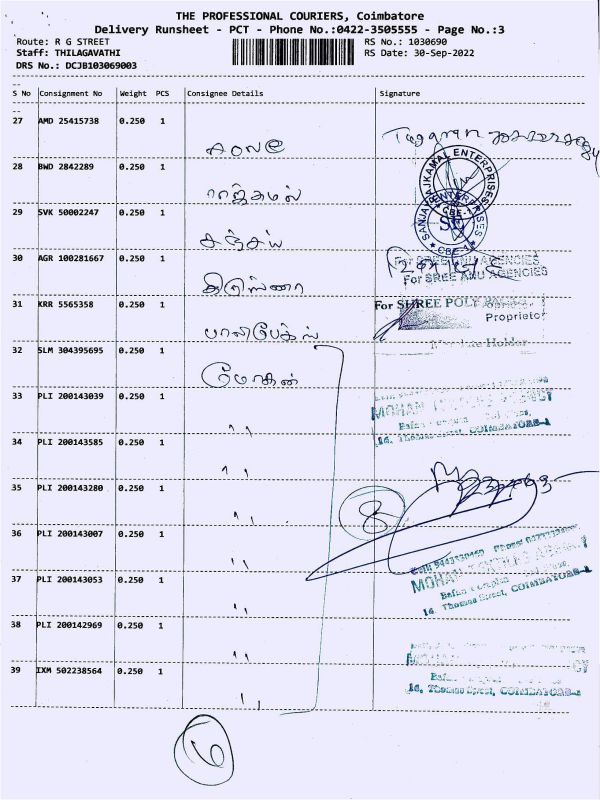 THE PROFESSIONAL COURIERS, Coimbatore
Delivery Runsheet - PCT - Phone No.:0422-3505555 - Page No.:3
Route: R G STREET
RS No.: 1030690
Staff: THILAGAVATHI
RS Date: 30-Sep-2022
DRS No.: DCJB103069003
S No Consignment No Weight PCS Consignee Details Signature
27 AMD 25415738 0.250 1
28 BWD 2842289 0.250 1 ராஜ்கமல்
SANJAY RAJKAMAL ENTERPRISES
29 SVK 50002247 0.250 1 சஞ்சய்
CBE-1
30 AGR 100281667 0.250 1 கிரிஸ்ணா
For SREE ANU AGENCIES
For SREE ANU AGENCIES
31 KRR 5565358 0.250 1 பாலிபேக்ஸ்
For SHREE POLY
Proprietor
32 SLM 304395695 0.250 1 மோகன்
33 PLI 200143039 0.250 1 ,,
MOHAN
16, Thomas Street, COIMBATORE-1
34 PLI 200143585 0.250 1 ,,
35 PLI 200143280 0.250 1 ,,
8
36 PLI 200143007 0.250 1 ,,
37 PLI 200143053 0.250 1 ,,
MOHAN
16, Thomas Street, COIMBATORE-1
38 PLI 200142969 0.250 1 ,,
39 IXM 502238564 0.250 1 ,,
16, Thomas Street, COIMBATORE-1
6